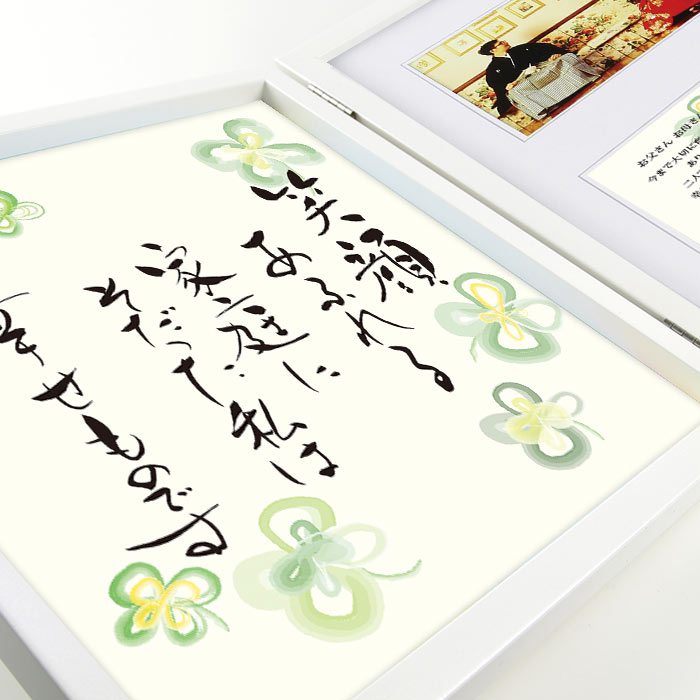 笑顔
あふれる
家庭に私は
そだった
幸せものです
お父さん お母さん
今まで大切に
あ
二人
幸